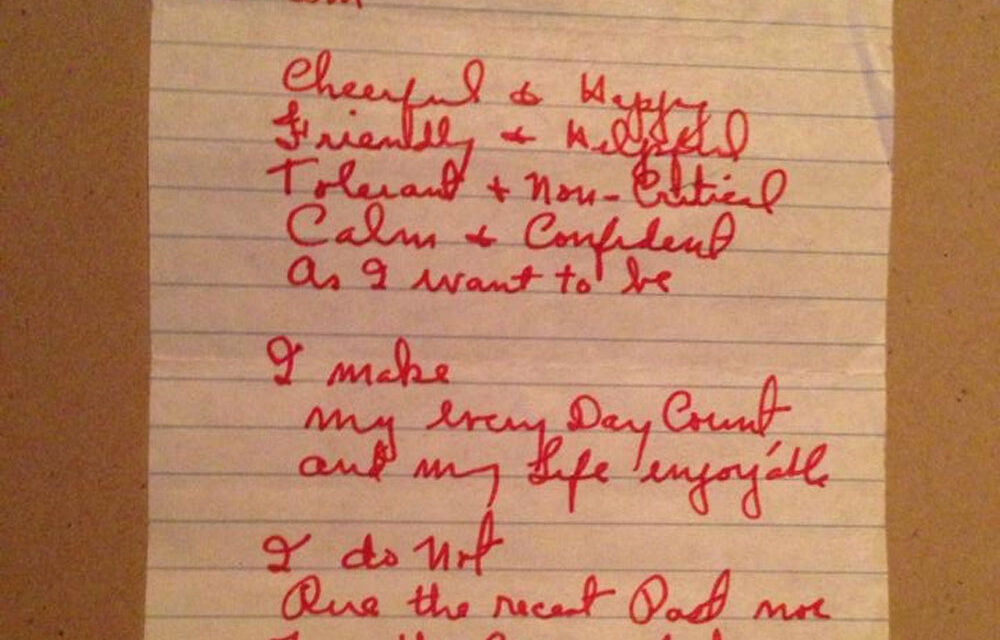 Cheerful & Happy
Friendly & Helpful
Tolerant & Non-Critical
Calm & Confident
As I want to be
I make
my every Day Count
and my Life enjoyable
I do Not
the recent Past nor